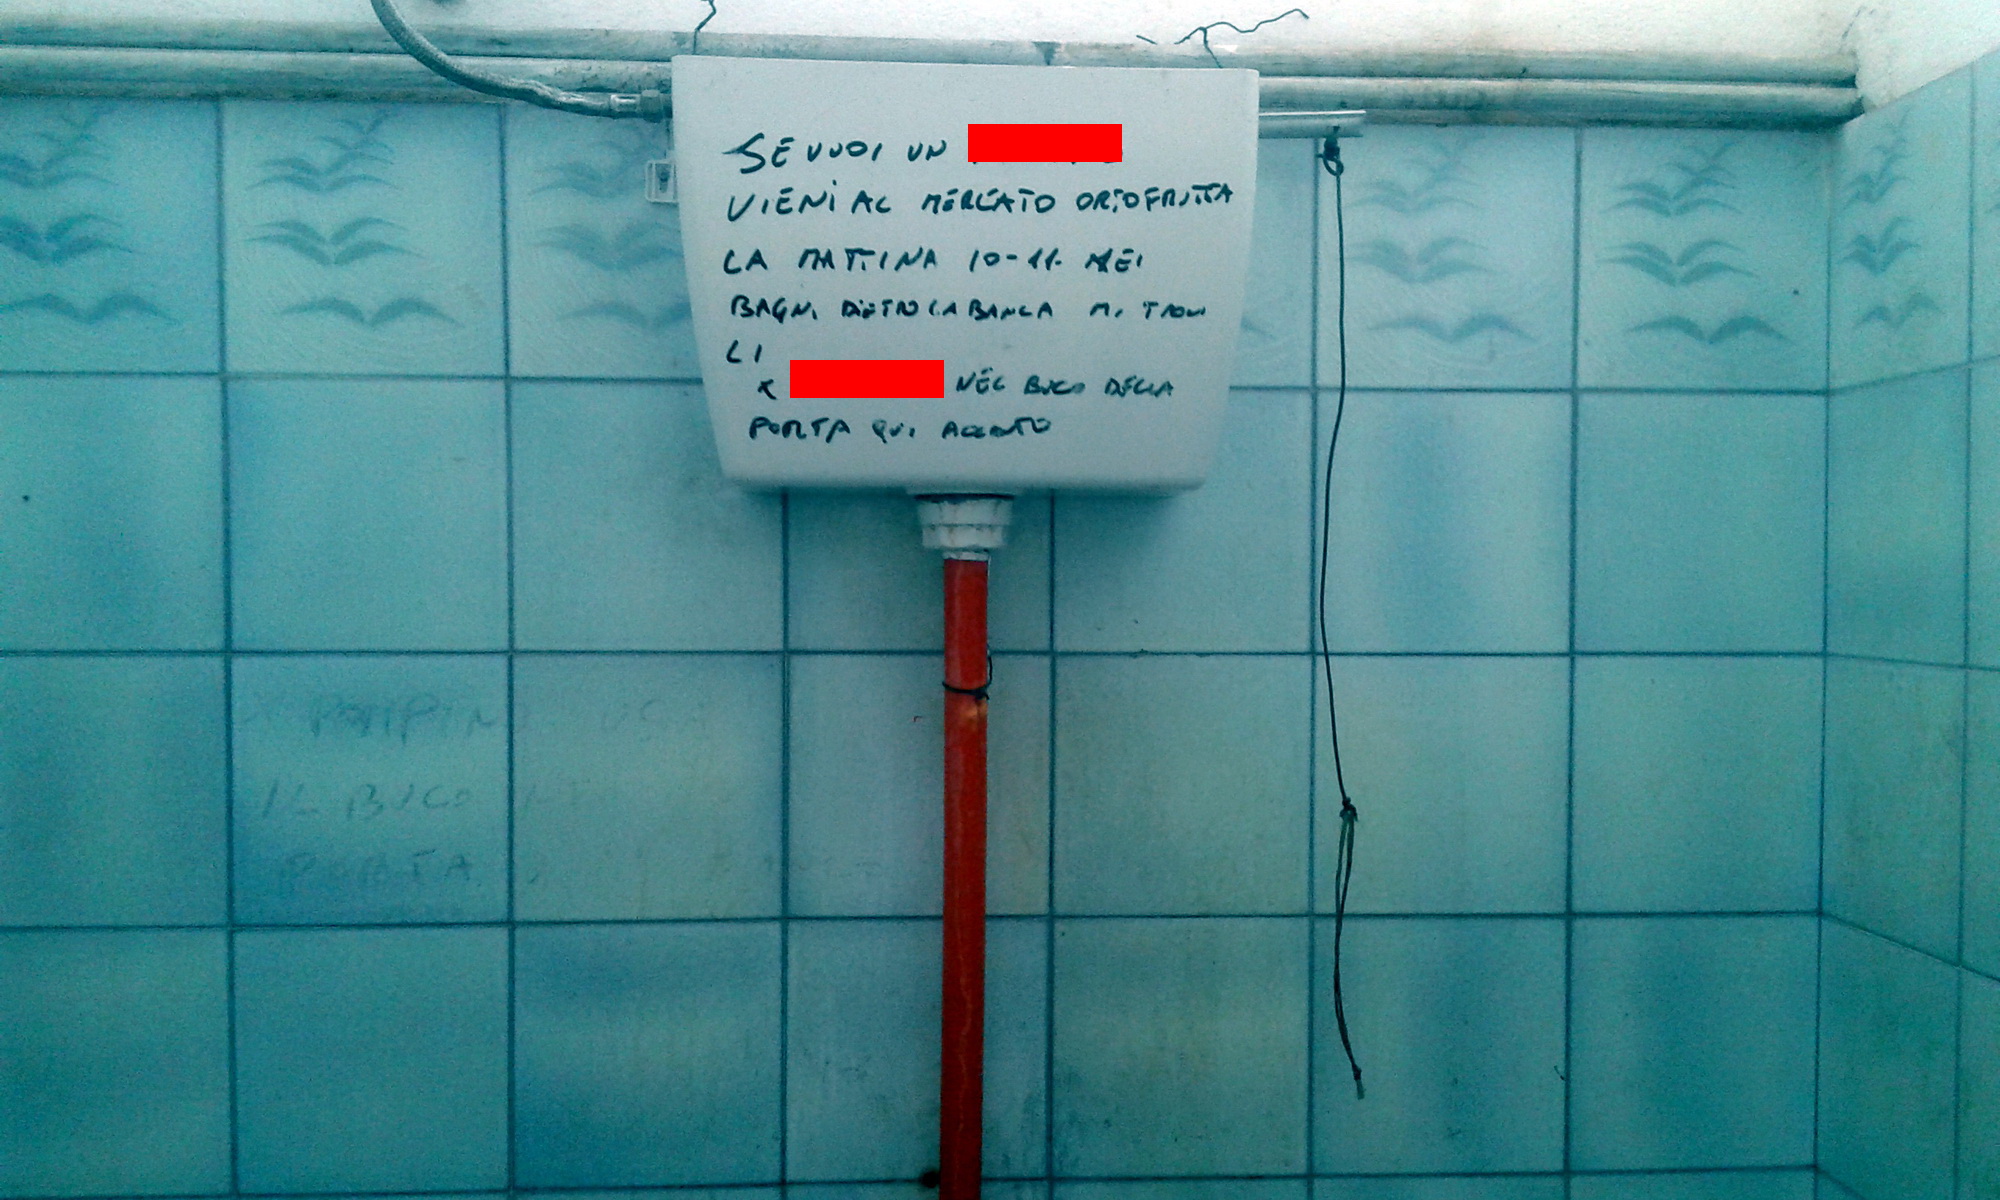 SE VUOI UN
VIENI AL MERCATO ORTOFRUTTA
LA MATTINA 10-11 NEI
BAGNI DIETRO LA BANCA MI TROVI
LI
X NEL BUCO DELLA
PORTA QUI ACCANTO
POMPINO
IL BUCO
PORTA